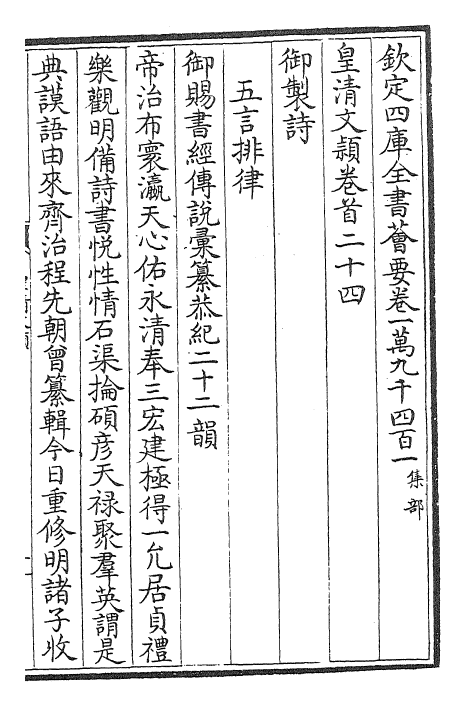 欽定四庫全書薈要卷一萬九千四百一集部
皇清文頴卷首二十四
御製詩
五言排律
御賜書經傳說彙纂恭紀二十二韻
帝治布寰瀛天心佑永清奉三宏建極得一允居貞禮
樂觀明備詩書悅性情石渠掄碩彥天禄聚羣英謂是
典謨語由來齊治程先朝曾纂輯今日重修明諸子收